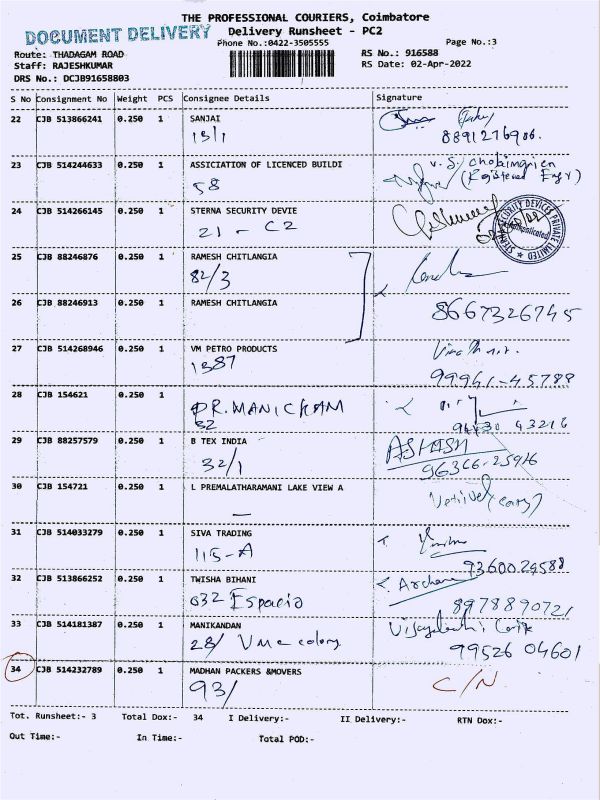 THE PROFESSIONAL COURIERS, Coimbatore
DOCUMENT DELIVERY
Delivery Runsheet - PC2
Phone No.:0422-3505555
Page No.:3
Route: THADAGAM ROAD
RS No.: 916588
Staff: RAJESHKUMAR
RS Date: 02-Apr-2022
DRS No.: DCJB91658803
S No Consignment No Weight PCS Consignee Details Signature
22 CJB 513866241 0.250 1 SANJAI
13/1 8891276906.
23 CJB 514244633 0.250 1 ASSICIATION OF LICENCED BUILDI
58 (Registered Engr)
24 CJB 514266145 0.250 1 STERNA SECURITY DEVIE
21 - C2
STERNA SECURITY DEVICES PRIVATE LIMITED
25 CJB 88246876 0.250 1 RAMESH CHITLANGIA
82/3
26 CJB 88246913 0.250 1 RAMESH CHITLANGIA
8667326745
27 CJB 514268946 0.250 1 VM PETRO PRODUCTS
1387 99941-45788
28 CJB 154621 0.250 1
DR.MANICKAM
32 43216
29 CJB 88257579 0.250 1 B TEX INDIA ASHISH
32/1 96366-25916
30 CJB 154721 0.250 1 L PREMALATHARAMANI LAKE VIEW A
—
31 CJB 514033279 0.250 1 SIVA TRADING
115-A 9360029588
32 CJB 513866252 0.250 1 TWISHA BIHANI Archana
032 Espacio 8978890721
33 CJB 514181387 0.250 1 MANIKANDAN
28/ Vmc colony 99526 04601
34 CJB 514232789 0.250 1 MADHAN PACKERS &MOVERS
93/ C/N
Tot. Runsheet:- 3 Total Dox:- 34 I Delivery:- II Delivery:- RTN Dox:-
Out Time:- In Time:- Total POD:-